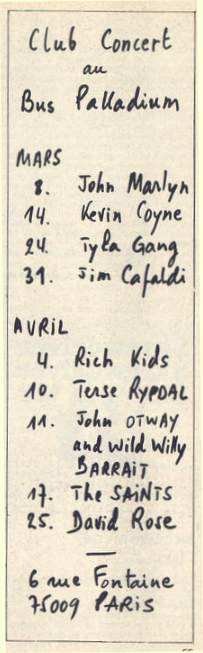 Club Concert
au
Bus Palladium
MARS
8. John Marlyn
14. Kevin Coyne
24. Tyla Gang
31. Jim Cafaldi
AVRIL
4. Rich Kids
10. Terse RYPDAL
11. John OTWAY
and Wild Willy
BARRAIT
17. The SAINTS
25. David Rose
6 rue Fontaine
75009 PARIS